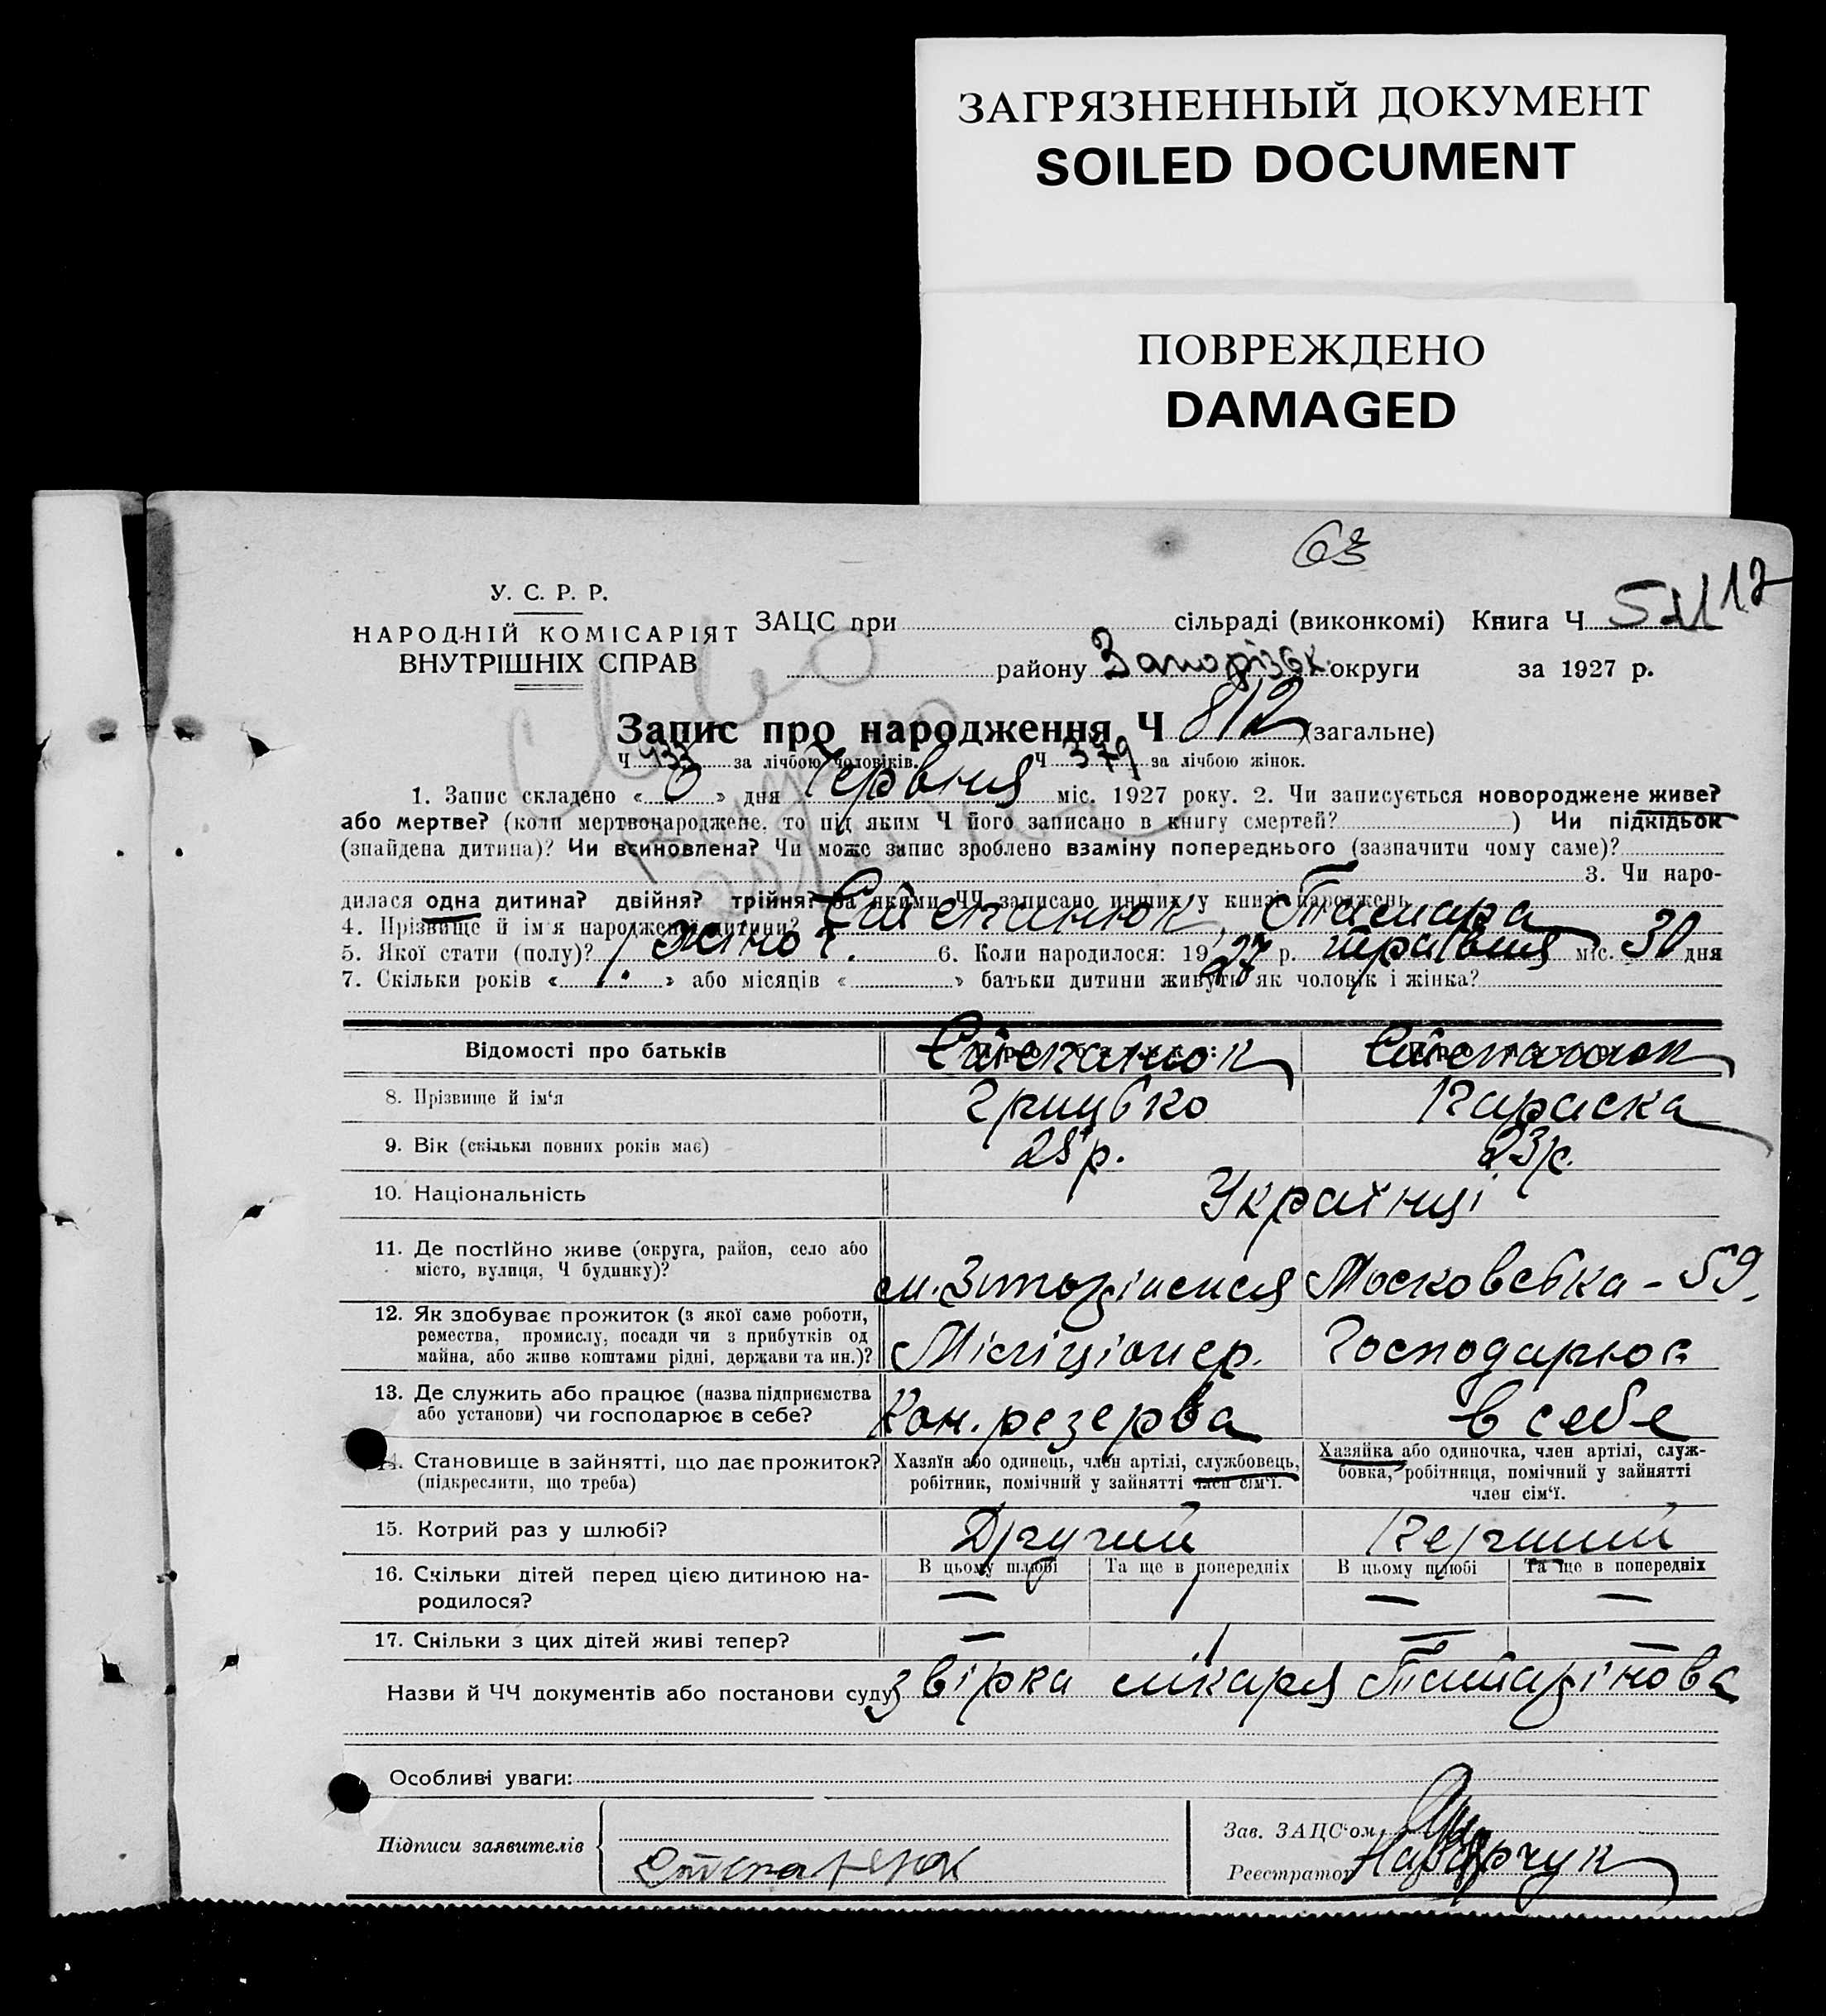 ЗАГРЯЗНЕННЫЙ ДОКУМЕНТ
SOILED DOCUMENT
ПОВРЕЖДЕНО
DAMAGED
63
У. С. Р. Р.
НАРОДНІЙ КОМІСАРІЯТ
ВНУТРІШНІХ СПРАВ
ЗАЦС при сільраді (виконкомі) Книга Ч
району Запорізьк. округи за 1927 р.
Запис про народження Ч 812 (загальне)
Ч 433 за лічбою чоловіків. Ч 379 за лічбою жінок.
1. Запис складено « 6 » дня Червня міс. 1927 року. 2. Чи записується новороджене живе?
або мертве? (коли мертвонароджене, то під яким Ч його записано в книгу смертей? ) Чи підкідьок
(знайдена дитина)? Чи всиновлена? Чи може запис зроблено взаміну попереднього (зазначити чому саме)?
3. Чи наро-
дилася одна дитина? двійня? трійня? За якими ЧЧ записано инших у книзі народжень
4. Прізвище й ім'я народженої дитини? Степанюк, Тамара
5. Якої стати (полу)? Жіноч. 6. Коли народилося: 1927 р. травня міс. 30 дня
7. Скільки років « 1 » або місяців « » батьки дитини живуть як чоловік і жінка?
Відомості про батьків Степанюк Степанюк
8. Прізвище й ім'я Грицько Параска
9. Вік (скільки повних років має) 28 р. 23 р.
10. Національність Українці
11. Де постійно живе (округа, район, село або
місто, вулиця, Ч будинку)? м. Запоріжжя Московська - 59.
12. Як здобуває прожиток (з якої саме роботи,
ремества, промислу, посади чи з прибутків од
майна, або живе коштами рідні, держави та ин.)? Міліціонер. Господарює
13. Де служить або працює (назва підприємства
або установи) чи господарює в себе? Кон. резерва в себе
14. Становище в зайнятті, що дає прожиток?
(підкреслити, що треба)
Хазяїн або одинець, член артілі, службовець,
робітник, помічний у зайнятті член сім'ї.
Хазяйка або одиночка, член артілі, служ-
бовка, робітниця, помічний у зайнятті
член сім'ї.
15. Котрий раз у шлюбі? Другий Перший
16. Скільки дітей перед цією дитиною на-
родилося?
В цьому шлюбі Та ще в попередніх В цьому шлюбі Та ще в попередніх
— 1 — —
17. Скільки з цих дітей живі тепер? — 1 — —
Назви й ЧЧ документів або постанови суду звірка лікаря
Особливі уваги:
Підписи заявителів Степанюк
Зав. ЗАЦС'ом
Реєстратор